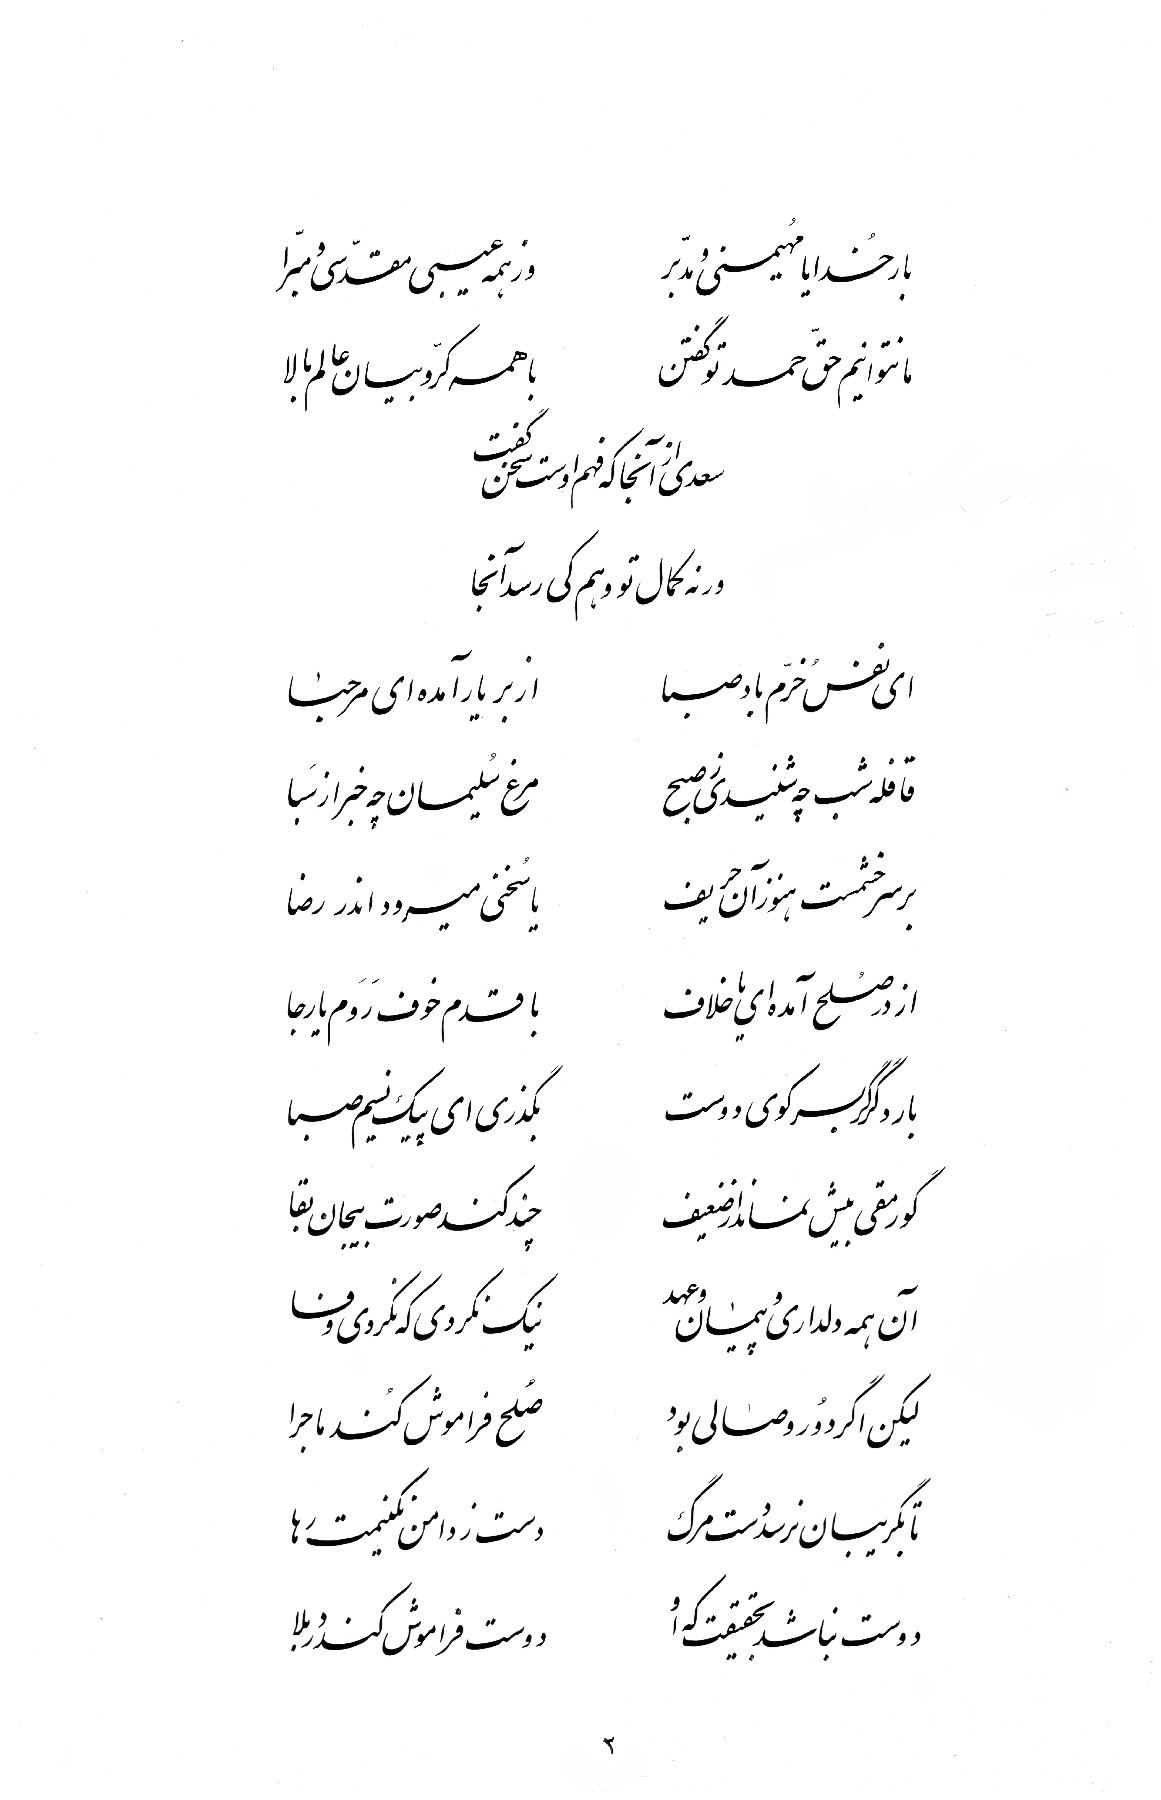 بار خُدایا مُهیمنی و مدبّر وز همه عیبی مقدّسی و مبّرا
ما نتوانیم حقّ حمد تو گفتن با همه کرّوبیان عالم بالا
سعدی از آنجا که فهم اوست سخن گفت
ورنه کمال تو وهم کی رسد آنجا
ای نفس خُرّم باد صبا از بر یار آمده ای مرحبا
قافله شب چه شنیدی ز صبح مرغ سُلیمان چه خبر از سَبا
بر سر خشمست هنوز آن حریف یا سُخنی میرود اندر رضا
از در صُلح آمده ای یا خلاف با قدم خوف رَوَم یا رجا
بار دگر گر بسر کوی دوست بگذری ای پیک نسیم صبا
گو رمقی بیش نماند از ضعیف چند کند صورت بیجان بقا
آن همه دلداری و پیمان و عهد نیک نکردی که نکردی وفا
لیکن اگر دُور وصالی بود صُلح فراموش کُند ماجرا
تا بگریبان نرسد دست مرگ دست ز دامن نکنیمت رها
دوست نباشد بحقیقت که او دوست فراموش کند در بلا
۳